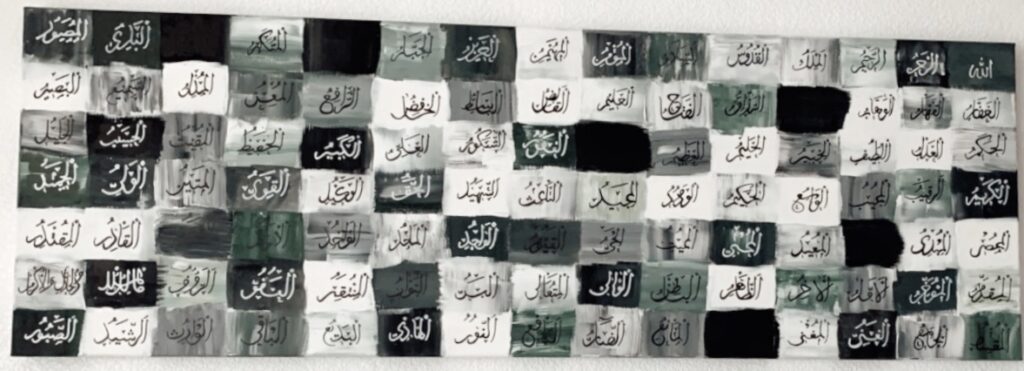 الله الرحمن الرحيم الملك القدوس السلام المؤمن المهيمن العزيز الجبار المتكبر البارئ المصور
الغفار القهار الوهاب الفتاح العليم القابض الباسط الخافض الرافع المعز المذل السميع البصير
الحكم العدل اللطيف الخبير الحليم العظيم الغفور الشكور العلي الكبير الحفيظ المقيت الحسيب الجليل
الكريم الرقيب المجيب الواسع الحكيم الودود المجيد الباعث الشهيد الحق الوكيل القوي المتين الولي الحميد
المحصي المبدئ المعيد المحيي المميت الحي القيوم الواجد الماجد الواحد الأحد القادر المقتدر
المقدم المؤخر الأول الآخر الظاهر الباطن الوالي المتعال البر التواب المنتقم الرؤوف
المقسط الجامع الغني المغني المانع الضار النافع النور الهادي البديع الباقي الوارث الرشيد الصبور